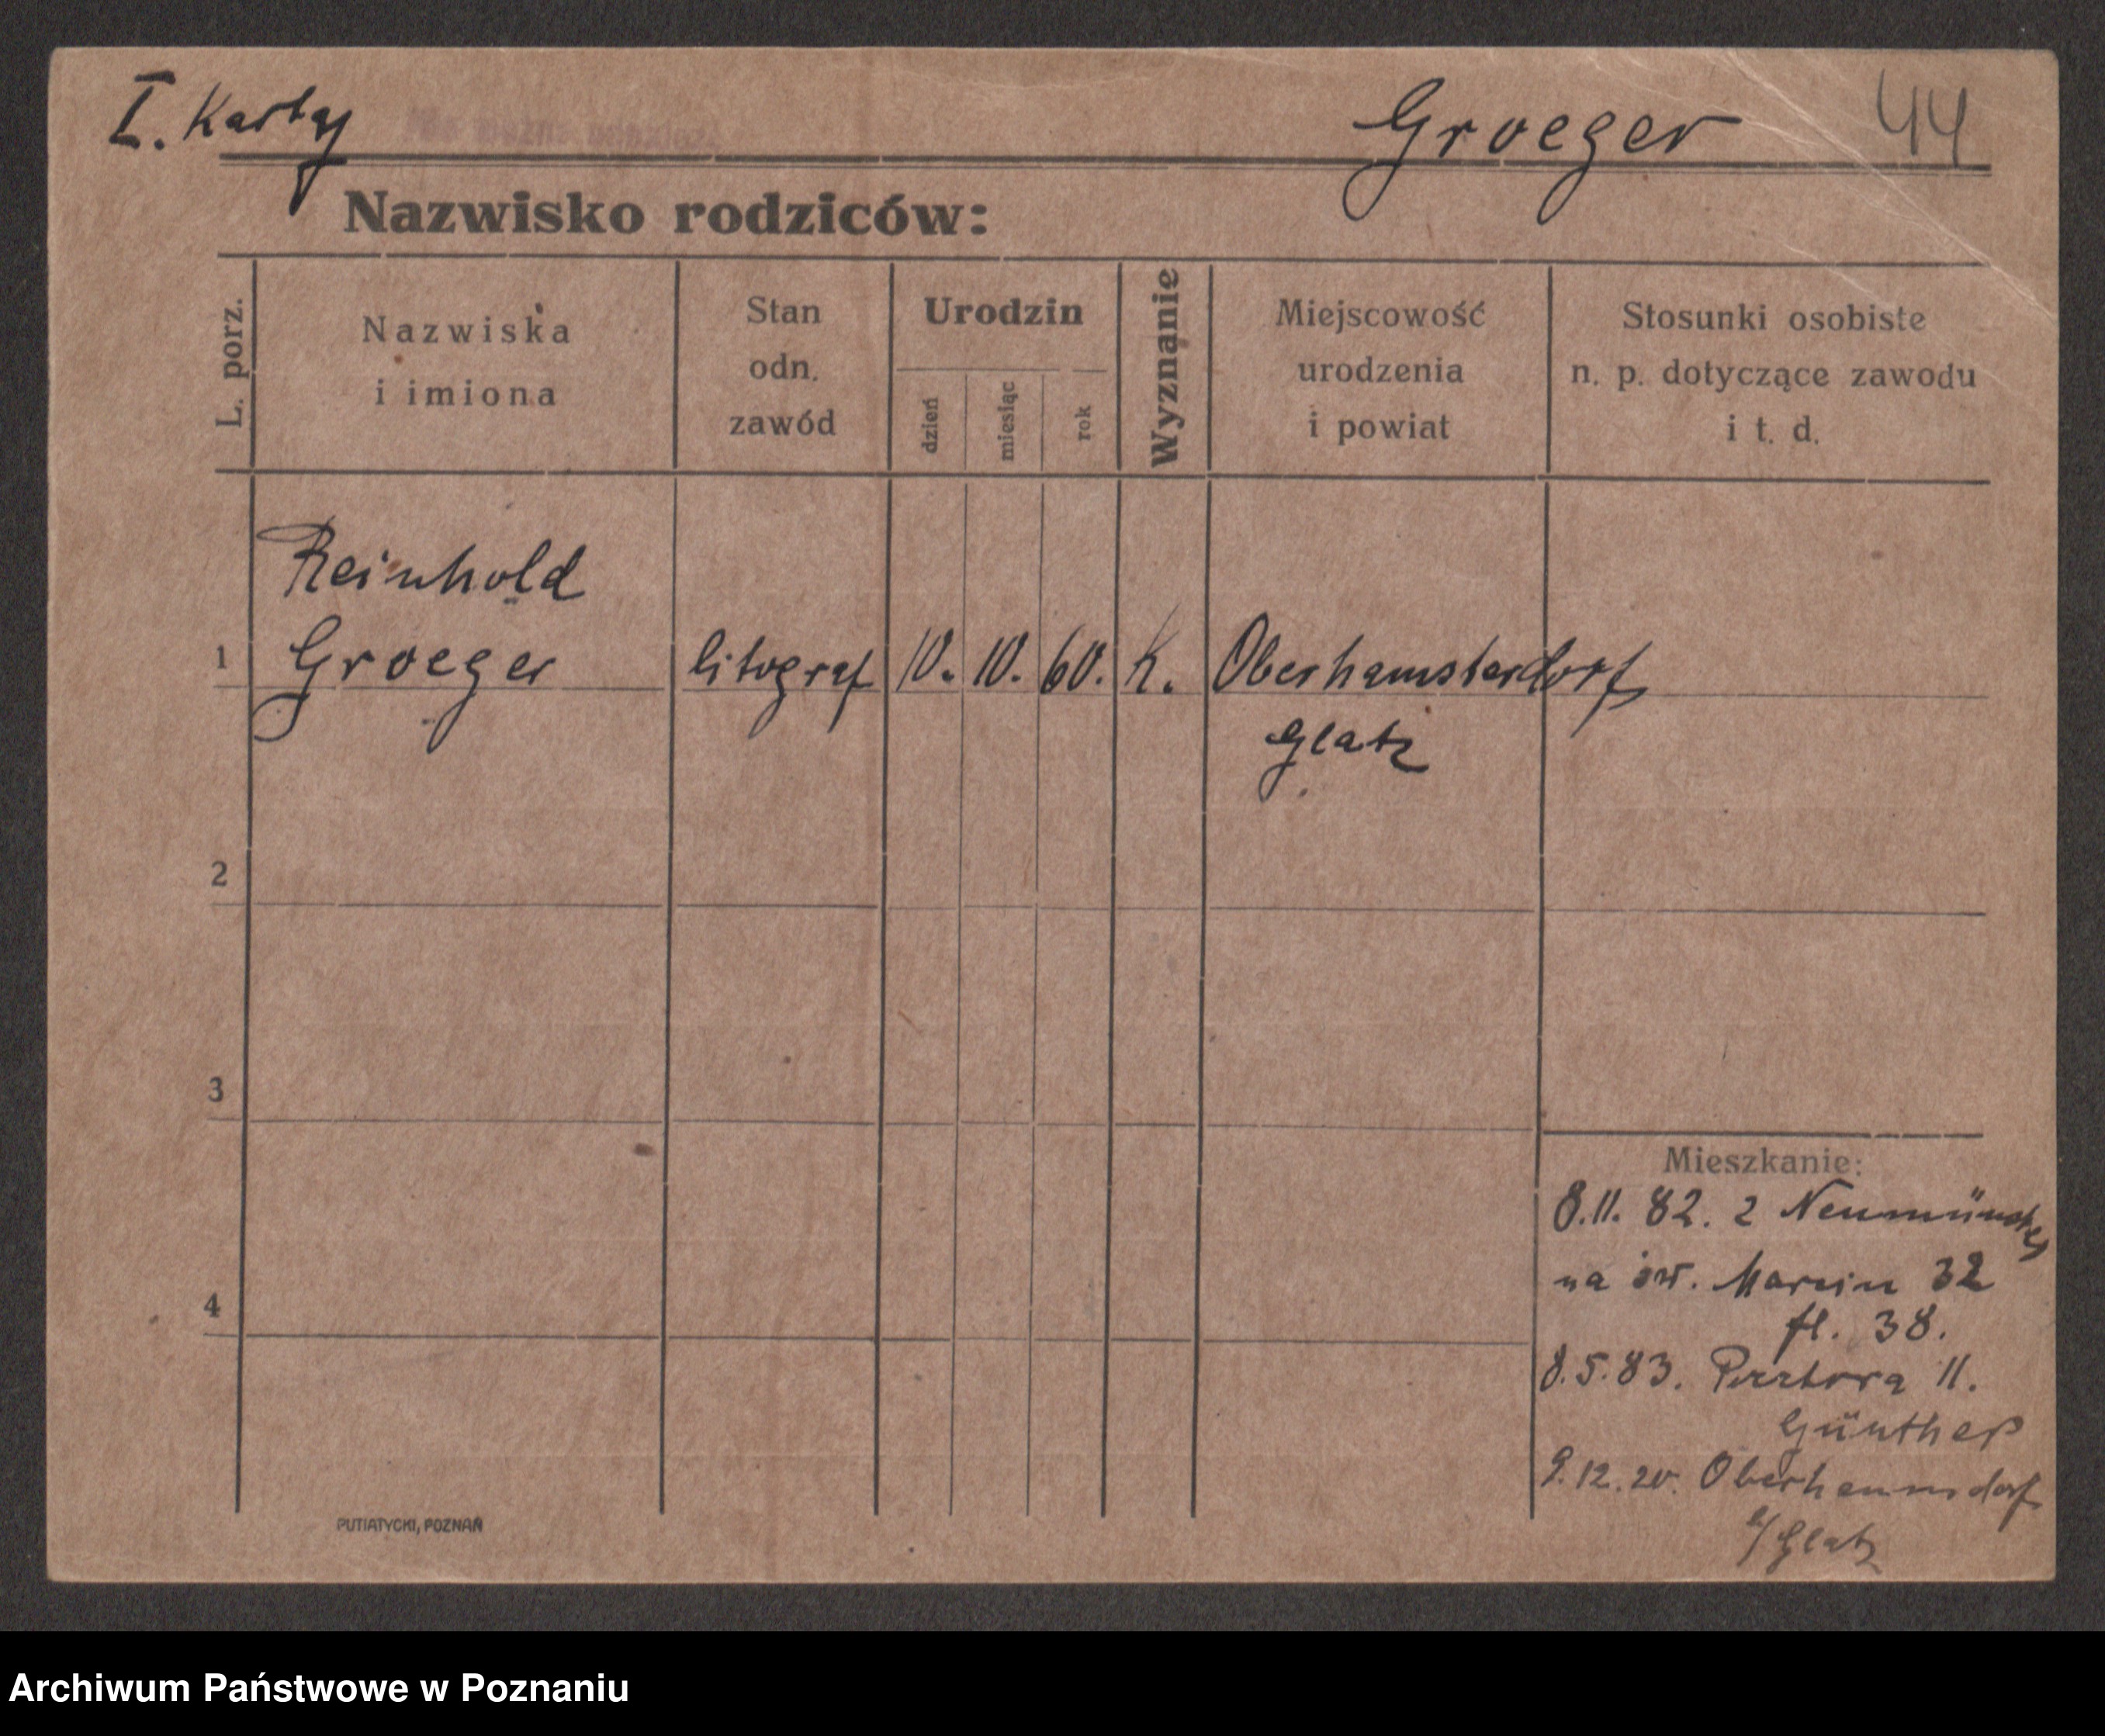 I. Karty
Groeger 44
Nazwisko rodziców:
L. porz.
Nazwiska
i imiona
Stan
odn.
zawód
Urodzin
dzień
miesiąc
rok
Wyznanie
Miejscowość
urodzenia
i powiat
Stosunki osobiste
n. p. dotyczące zawodu
i t. d.
Reinhold
1 Groeger litograf 10. 10. 60. K. Oberhamsterdorf
Glatz
2
3
4
Mieszkanie:
8.11.82. z Neumünster
na św. Marcin 32
fl. 38.
8.5.83. 11.
Günther
9.12.20. Oberhannsdorf
b/Glatz
PUTIATYCKI, POZNAŃ
Archiwum Państwowe w Poznaniu